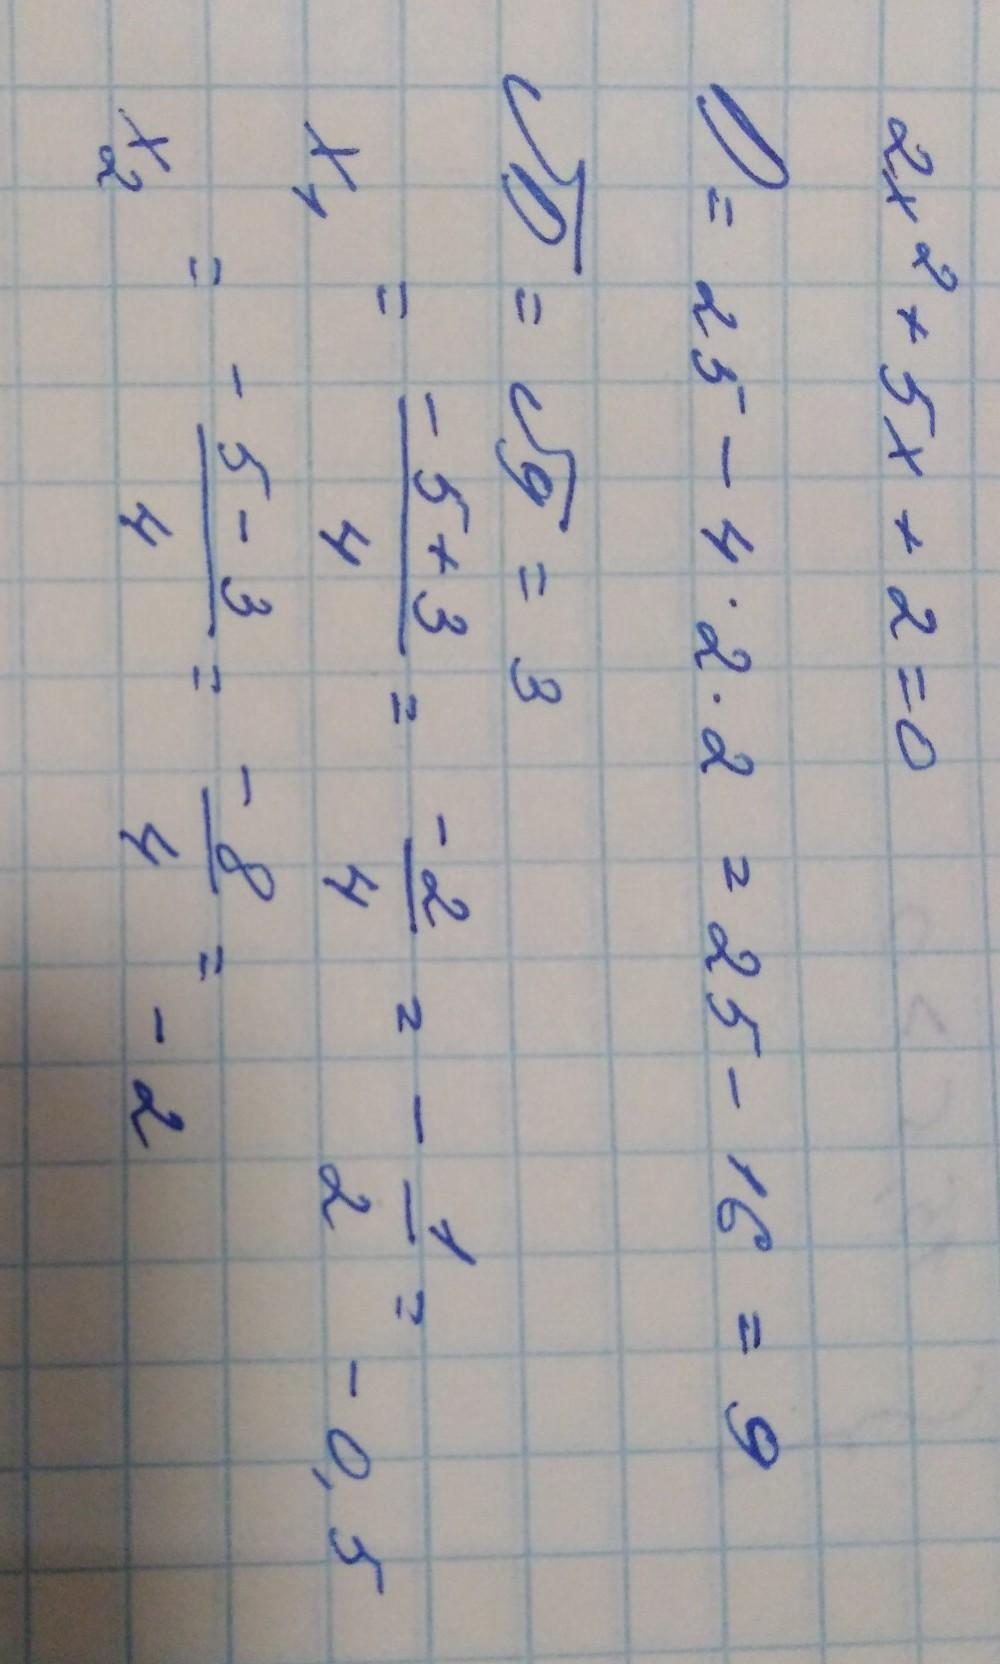 2x² + 5x + 2 = 0
D = 25 - 4 · 2 · 2 = 25 - 16 = 9
√D = √9 = 3
x₁ = (-5 + 3)/4 = -2/4 = -1/2 = -0,5
x₂ = (-5 - 3)/4 = -8/4 = -2